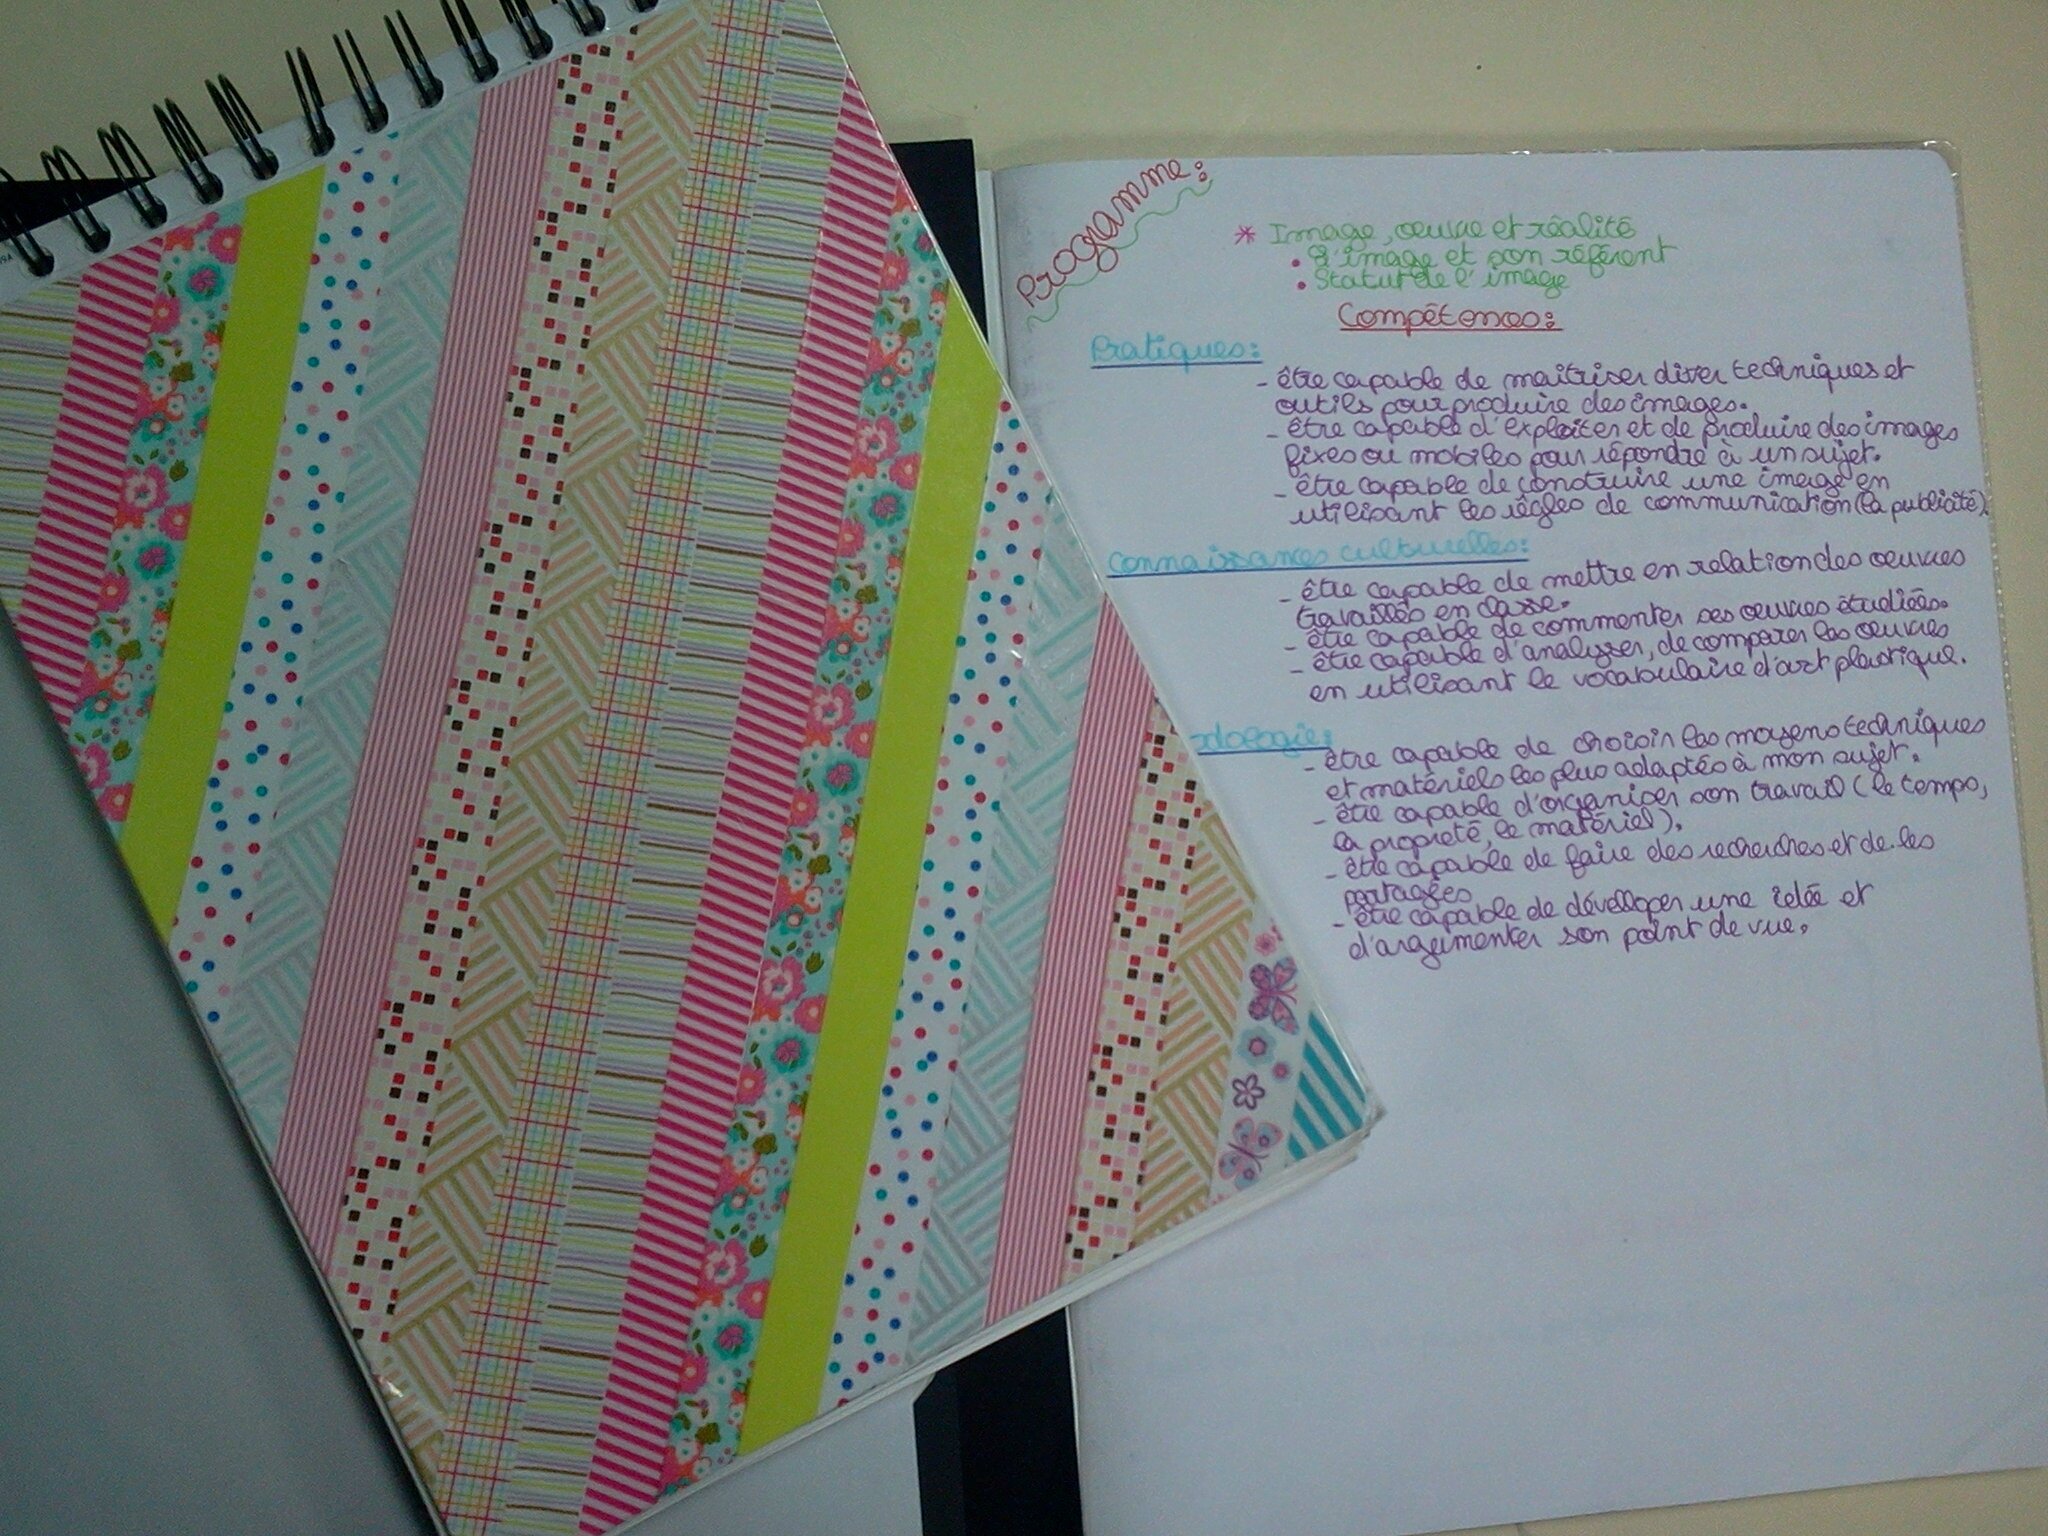 Programme:
* Image, œuvre et réalité
• L'image et son référent
• Statut de l'image
Compétences:
Pratiques:
- être capable de maitriser diver techniques et
outils pour produire des images.
- être capable d'exploiter et de produire des images
fixes ou mobiles pour répondre à un sujet.
- être capable de construire une image en
utilisant les règles de communication (la publicité).
Connaissances culturelles:
- être capable de mettre en relation des œuvres
travaillés en classe.
- être capable de commenter ses œuvres étudiées.
- être capable d'analyser, de comparer les œuvres
en utilisant le vocabulaire d'art plastique.
odologie:
- être capable de choisir les moyens techniques
et matériels les plus adaptés à mon sujet.
- être capable d'organiser son travail (le temps,
la propreté, le matériel).
- être capable de faire des recherches et de les
partagées
- être capable de développer une idée et
d'argumenter son point de vue.